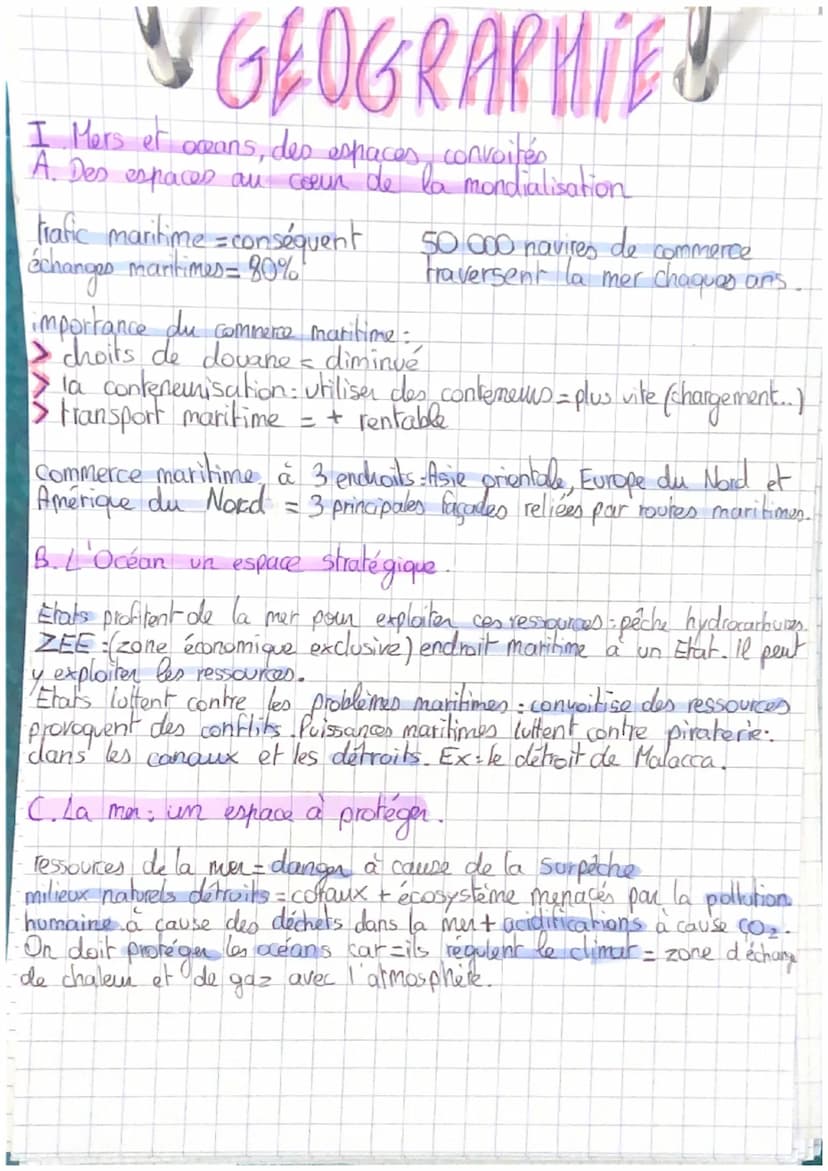 GEOGRAPHIE
I. Mers et océans, des espaces convoités
A. Des espaces au coeur de la mondialisation
trafic maritime = conséquent
échanges maritimes = 80%
50 000 navires de commerce
traversent la mer chaques ans.
importance du commerce maritime :
> droits de douane = diminué
> la conteneurisation : utiliser des conteneurs = plus vite (chargement...)
> transport maritime = + rentable
commerce maritime à 3 endroits : Asie orientale, Europe du Nord et
Amérique du Nord = 3 principales façades reliées par routes maritimes.
B. L'Océan un espace stratégique.
Etats profitent de la mer pour exploiter ces ressources : pêche hydrocarbures.
ZEE : (zone économique exclusive) endroit maritime à un Etat. il peut
y exploiter les ressources.
Etats luttent contre les problèmes maritimes : convoitise des ressources
provoquent des conflits. Puissances maritimes luttent contre piraterie :
dans les canaux et les détroits. Ex : le détroit de Malacca.
C. La mer : un espace à protéger.
ressources de la mer = danger à cause de la surpêche
milieux naturels détruits = coraux + écosystème menacés par la pollution
humaine à cause des déchets dans la mer + acidifications à cause CO₂.
On doit protéger les océans car = ils régulent le climat = zone d'échange
de chaleur et de gaz avec l'atmosphère.